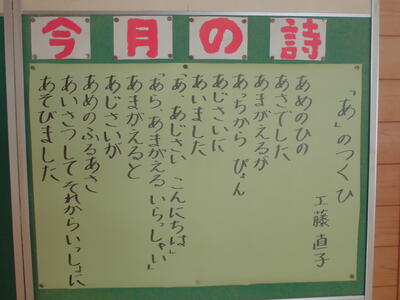 今月の詩
「あ」のつくひ
工藤直子
あめのひの
あさでした
あまがえるが
あっちから ぴょん
あじさいに
あいました
「あ、あじさい こんにちは」
「あら、あまがえる いらっしゃい」
あまがえると
あじさいが
あめのふるあさ
あいさつ してそれからいっしょに
あそびました